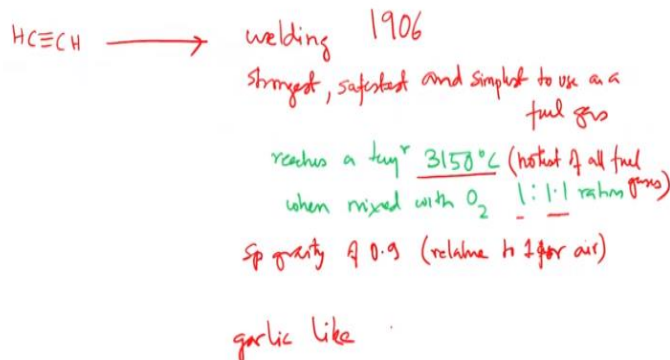 HC≡CH ⟶ welding 1906
strongest, safestest and simplest to use as a
fuel gas
reaches a temp^r 3150°C (hottest of all fuel
gases)
when mixed with O₂ 1:1.1 ratio
sp gravity of 0.9 (relative to 1 for air)
garlic like